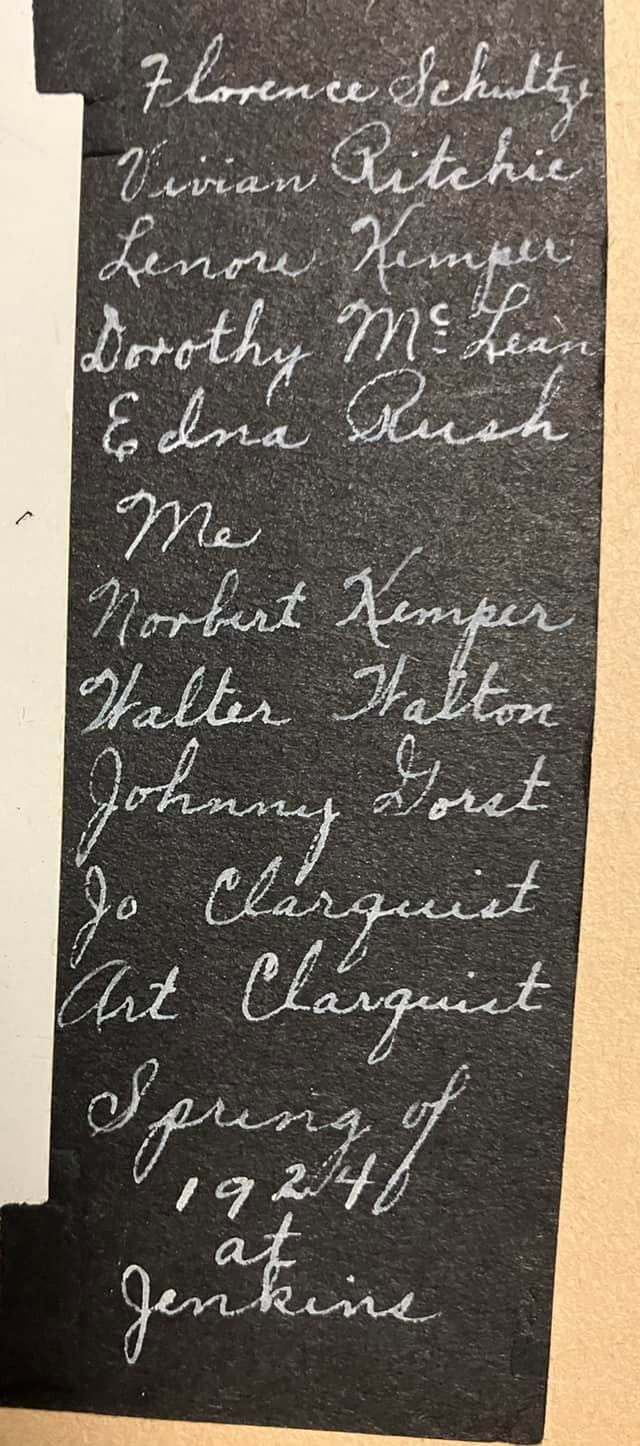 Florence Schultze
Vivian Ritchie
Lenore Kemper
Dorothy McLean
Edna Rush
Me
Norbert Kemper
Walter Walton
Johnny Gorst
Jo Clarquist
Art Clarquist
Spring of
1924
at
Jenkins